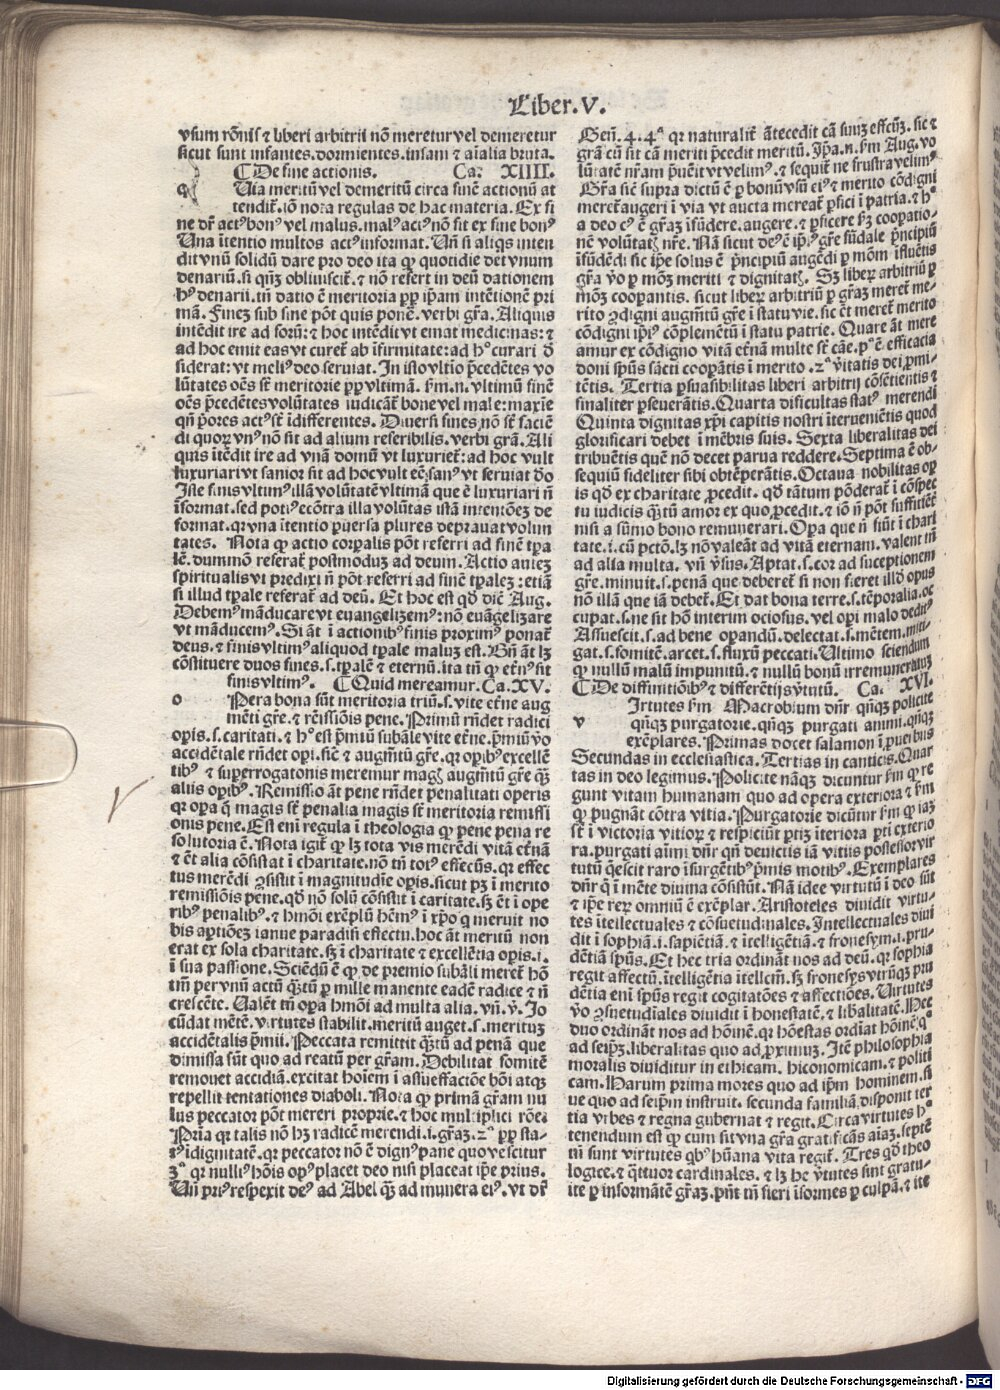 Liber.V.
vsum rõnis ⁊ liberi arbitrii nõ meretur vel demeretur
sicut sunt infantes.dormientes.insani ⁊ aĩalia bruta.
¶ De fine actionis. Ca. XIIII.
q Uia meritũ vel demeritũ circa finẽ actionũ at
tendit̃.iõ nota regulas de hac materia. Ex fi
ne dr̃ actꝰ bonꝰ vel malus.malꝰ aciꝰ nõ fit ex fine bonꝰ
Una ĩtentio multos actꝰ informat. Un̄ si aliqs inten
dit vnũ solidũ dare pro deo ita ꝙ quotidie det vnum
denariũ.si qñꝫ obliuiscit̃.⁊ nõ refert in deũ dationem
hꝰ denarii.tñ datio ẽ meritoria ꝓp ip̃am intẽtionẽ pri
mã. Fineꝫ sub fine põt quis ponẽ.verbi gr̃a. Aliquis
intẽdit ire ad forũ:⁊ hoc intẽdit vt emat medicinas:⁊
ad hoc emit eas vt curet̃ ab ĩfirmitate:ad hᵒ curari d̃
siderat:vt meliꝰ deo seruiat. In isto vltio p̃cedẽtes vo
lũtates oẽs st̃ meritorie ꝓp vltimã. s̃m.n. vltimũ finẽ
oẽs p̃cedẽtes volũtates iudicãt̃ bone vel male:maxĩe
qñ p̃ores actꝰ st̃ ĩdifferentes. Diuersi fines nõ st̃ faciẽ
di quoꝝ vnꝰ nõ sit ad alium referibilis.verbi grã. Ali
quis ĩtẽdit ire ad vnã domũ vt luxuriet̃:ad hoc vult
luxuriari vt sanior sit ad hoc vult eẽ sanꝰ vt seruiat d̃o
Iste finis vltimꝰ illã volũtatẽ vltimã que ẽ luxuriari ñ
ĩformat.sed potiꝰ ecõtra illa volũtas istã intentiõeꝫ de
format.qr vna ĩtentio ꝑuersa plures deprauat volun
tates. Nota ꝙ actio corꝑalis põt referri ad finẽ tp̃a
lẽ.dummõ referat̃ postmoduꝫ ad deum. Actio auteꝫ
spiritualis vt predixi ñ põt referri ad finẽ tp̃aleꝫ:etiã
si illud tp̃ale referat̃ ad deũ. Et hoc est qd̃ dic̃ Aug.
Debemꝰ mãducare vt euangelizemꝰ:nõ euãgelizare
vt mãducemꝰ. Si aũt ĩ actionibꝰ finis proximꝰ ponat̃
deus.⁊ finis vltimꝰ aliquod tp̃ale maluꝫ est. Bñ aũt lꝫ
cõstituere duos fines.s.tp̃alẽ ⁊ eternũ.ita tñ ꝙ et̃nꝰ sit
finis vltimꝰ. ¶ Quid mereamur. Ca. XV.
o Pera bona sũt meritoria triũ.s.vite et̃ne aug
mẽti gr̃e.⁊ r̃missiõis pene. Primũ rñdet radici
oꝑis.s.caritati.⁊ hᵒ est p̃miũ sub̃ale vite et̃ne.p̃miũ ỹo
accidẽtale rñdet oꝑi.sic̃ ⁊ augm̃tũ gr̃e.qr oꝑibꝰ excellẽ
tibꝰ ⁊ suꝑerrogatonis meremur magꝭ augm̃tũ gr̃e ꝙ̃ꝫ
aliis oꝑibꝰ. Remissio aũt pene rñdet penalitati operis
qr oꝑa q̃ magis st̃ penalia magis st̃ meritoria remissi
onis pene. Est eni regula ĩ theologia ꝙ pene pena re
solutoria ẽ. Nota igit̃ ꝙ lꝫ tota vis merẽdi vitã et̃nã
⁊ ẽt alia cõsistat ĩ charitate.nõ tñ totꝰ effectꝰ.qr effec
tus merẽdi ꝯsistit ĩ magnitudĩe oꝑis.sicut pꝫ ĩ merito
remissiõis pene.qd̃ nõ solũ cõsistit ĩ caritate.sꝫ ẽt ĩ ope
ribꝰ penalibꝰ.⁊ hm̃õi exẽplũ hẽmꝰ ĩ xp̃o q meruit no
bis aꝑtiõeꝫ ianue paradisi effectu.hoc aũt meritũ non
erat ex sola charitate.sꝫ ĩ charitate ⁊ excellẽtia oꝑis.i.
ĩ sua passione. Sciẽdũ ẽ ꝙ de premio subãli meret̃ hõ
tm̃ per vnũ actũ ꝙ̃tũ ꝑ mille manente eadẽ radice ⁊ ñ
crescẽte. Ualẽt tñ oꝑa hmõi ad multa alia. vñ. ỹ. Jo
cũdat mẽtẽ.virtutes stabilit.meritũ auget.s.merituꝫ
accidẽtalis p̃mii. Peccata remittit ꝙ̃tũ ad penã que
dimissa sũt quo ad reatũ per gr̃am. Debilitat fomitẽ
remouet accidiã.excitat hoĩem ĩ assueffaciõe bõi atqꝫ
repellit tentationes diaboli. Nota ꝙ primã gr̃am nu
lus peccator põt mereri proprie.⁊ hoc multiplici rõe.
Pria qr talis nõ hꝫ radicẽ merendi.i.gr̃aꝫ.2ᵃ ꝓp sta-
tꝰ ĩdignitatẽ.qr peccator nõ ẽ dignꝰ pane quo vescitur
3ᵃ qr nulliꝰ hõis opꝰ placet deo nisi placeat ip̃e prius.
Uñ priꝰ respexit deꝰ ad Abel ꝙ̃ ad munera eiꝰ. vt dr̃
Geñ.4.4ᵃ qr naturalit̃ ãtecedit cã suuꝫ effectũ.sic ⁊
grã cũ sit cã meriti p̃cedit meritũ. Ip̃a.n.s̃m Aug.vo
lũtatẽ nr̃am p̃uẽit vt velimꝰ.⁊ sequit̃ ne frustra velimꝰ
Gr̃a sic̃ supra dictũ ẽ ꝑ bonũ vsũ eiꝰ ⁊ merito cõdigni
meret̃ augeri ĩ via vt aucta mereat̃ ꝑfici ĩ patria.⁊ hᵒ
a deo cꝰ ẽ gr̃aꝫ ĩfũdere.augere.⁊ ꝑficere sꝫ cooꝑatio-
nẽ volũtatꝭ nr̃e. Nã sicut deꝰ ẽ ip̃iꝰ gr̃e fũdale p̃ncipiũ
ĩfũdẽdi sic ip̃e solus ẽ p̃ncipiũ augẽdi ꝑ mõm ĩfluẽtis
gr̃a ỹo ꝑ mõꝫ meriti ⁊ dignitatꝭ. Sꝫ liber̃ arbitriũ ꝑ
mõꝫ cooꝑantis.sicut liber̃ arbitriũ ꝑ gr̃aꝫ meret̃ me-
rito ꝯdigni augm̃tũ gr̃e ĩ statu vie.sic ẽt meret̃ merito
cõdigni ip̃iꝰ cõplemẽtũ ĩ statu patrie. Quare aũt mere
amur ex cõdigno vitã et̃nã multe st̃ cãe.pᵃ ẽ efficacia
doni sp̃us sãcti cooꝑãtis ĩ merito.2ᵃ ỹitatis dei ꝓmi-
tẽtis. Tertia ꝑsuasibilitas liberi arbitrij cõsẽtientis ⁊
finaliter ꝑseuerãtis. Quarta dificultas statꝰ merendi
Quinta dignitas xp̃i capitis nostri ĩteruenĩẽtis quod
glorificari debet ĩ mẽbris suis. Sexta liberalitas dei
tribuẽtis quẽ nõ decet parua reddere. Septima ẽ ob-
sequiũ fideliter sibi obtẽꝑerãtis. Octaua nobilitas oꝑ
is qd̃ ex charitate ꝓcedit. qd̃ tãtum põderat̃ ĩ cõspec
tu iudicis ꝙ̃tũ amor ex quo ꝓcedit.⁊ iõ ñ põt sufficĩẽt̃
nisi a sũmo bono remunerari. Oꝑa que ñ fiũt ĩ chari
tate.i.cũ pctõ.lꝫ nõ valeãt ad vitã eternam.valent tñ
ad alia multa. vñ ỹsus. Aptat.s.cor ad susceptionem
gr̃e.minuit.s.penã que deberet̃ si non fieret illd̃ opus
nõ illã que iã debet̃. Et dat bona terre.s.tẽporalia.oc
cupat.s.ne sit hõ interim ociosus.vel oꝑi malo deditꝰ
Assuescit.s.ad bene oꝑandũ.delectat.s.mẽtem.miti
gat.s.fomitẽ.arcet.s.fluxũ peccati. Ultimo sciendum
ꝙ nullũ malũ impunitũ.⁊ nullũ bonũ irremuneratuꝫ
¶ De diffinitiõibꝰ ⁊ differẽtijs ỹtutũ. Ca. XVI.
v Irtutes s̃m Macrobium dñr qñqꝫ policite
qñqꝫ purgatorie.qñqꝫ purgati animi.qñqꝫ
exẽplares. Primas docet salamon ĩ ꝓuerbus
Secundas in ecclesiastica. Tertias in canticis. Quar
tas in deo legimus. Policite nãqꝫ dicuntur s̃m ꝙ re
gunt vitam humanam quo ad opera exteriora ⁊ s̃m
ꝙ pugnãt cõtra vitia. Purgatorie dicũtur s̃m ꝙ iaꝫ
st̃ ĩ victoria vitioꝝ ⁊ respiciũt ꝑtiꝫ ĩteriora ꝑti exterio
ra.purgati aĩmi dñr qñ deuictis iã vitiis possessor vir
tutũ q̃escit raro ĩsurgẽtibꝰ p̃mis motibꝰ. Exemplares
dñr q̃ ĩ mẽte diuina cõsistũt. Nã idee virtutũ ĩ deo sũt
⁊ ip̃e reꝝ omniũ ẽ exẽplar. Aristoteles diuidit virtu-
tes ĩtellectuales ⁊ cõsuetudinales. Intellectuales diui
dit ĩ sophiã.i.sapiẽtiã.⁊ ĩtelligẽtiã.⁊ fronesym.i.pru-
dẽtiã sp̃us. Et hec tria ordinãt nos ad deũ.qr sophia
regit affectũ.ĩtelligẽtia ĩtellcm̃.sꝫ fronesys vtrũqꝫ pru
dẽtia eni sp̃us regit cogitatões ⁊ affectiões. Uirtutes
ỹo ꝯsuetudĩales diuidit ĩ honestatẽ.⁊ libalitatẽ. Hec
duo ordinãt nos ad hõinẽ.qr hõestas ordĩat hõinẽ qᵒ
ad seip̃ꝫ.liberalitas quo ad ꝓximuꝫ. Itẽ philosophia
moralis diuiditur in ethicam.hiconomicam.⁊ politi
cam. Harum prima mores quo ad ip̃m hominem.si
ue quo ad seip̃m instruit.secunda familiã disponit ter
tia vrbes ⁊ regna gubernat ⁊ regit. Circa virtutes hᵒ
tenendum est ꝙ cum sit vna gr̃a gratificãs aĩaꝫ.septẽ
tñ sunt virtutes qbꝰ hũana vita regit̃. Tres qd̃ theo
logice.⁊ q̃ttuor cardinales.⁊ lꝫ he ỹtutes sint gratu-
ite ꝑ informãtẽ gr̃aꝫ.pñt tñ fieri ĩformes ꝑ culpã.⁊ ite
Digitalisierung gefördert durch die Deutsche Forschungsgemeinschaft - DFG